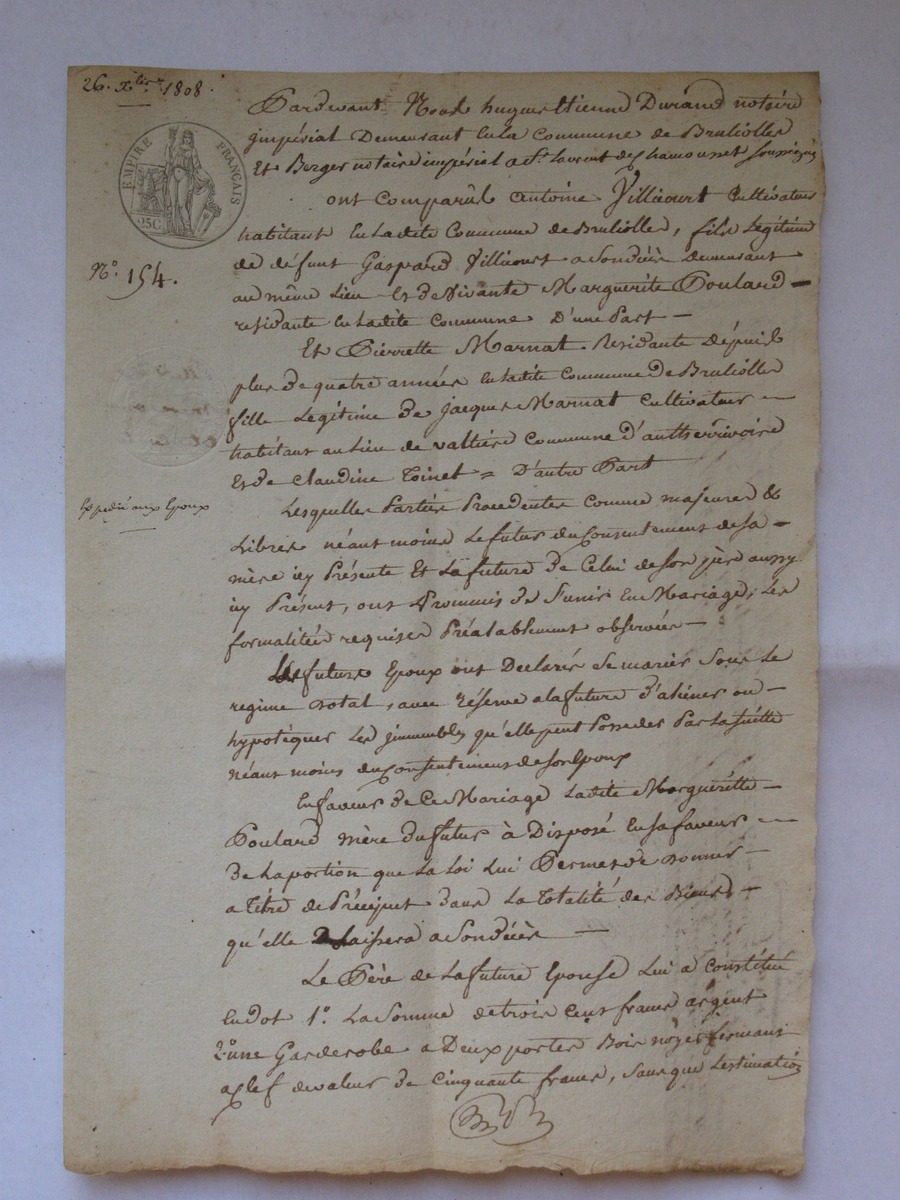 26. Xbre 1808.
EMPIRE FRANÇAIS
25C
N.o 154.
Expedié aux Epoux
Pardevant Nous hugues Etienne Durand notaire
jmpérial Demeurant en la Commune de Bruliolles
Et Berger notaire impérial a St. Laurent de Chamousset soussignés
ont Comparûs antoine Villicourt Cultivateur
habitant en Ladite Commune de Brulioller, fils Légitime
de défunt Gaspard Villicourt a Son décès demeurant
au même Lieu et de Vivante Marguerite Poulard —
residante en Ladite Commune D'une Part —
Et Pierrette Marnat Residante Dépuis
plus de quatre années en Ladite Commune de Brulioller
fille Legitime de jacques Marnat Cultivateur —
habitant au Lieu de Valtière Commune d'autherrivoire
et de Claudine Coinet = D'autre Part
Lesquelles Parties Procedentes Comme majeures &
Libres néant moins Le futur du Consentement de Sa —
mère icy Présente Et La future de Celui de Son père aussy
icy Présent, ont Prommis de S'unir En Mariage, Les
formalitées requises Préalablement observées —
Les futurs Epoux ont Declarés Se marier Sous Le
regime dotal, avec réserve a la future d'aliéner ou —
hypotéquer Les jmmeubles qu'elle peut Posseder Par La Suitte
néant moins du Consentement de Son Epoux
En faveur de Ce Mariage Ladite Marguéritte —
Poulard mère du futur à Disposé En Sa faveur —
de La portion que La Loi Lui Permet de donner —
a Titre de Préciput dans La Totalité des Biens —
qu'elle Delaissera a Son décès —
Le Père de La future Epouse Lui a Constitué
En dot 1.o La Somme de trois Cent francs argent
2.o une Garderobe a Deux portes Bois noyer fermant
a Clef de valeur de Cinquante francs, Sans que L'estimation